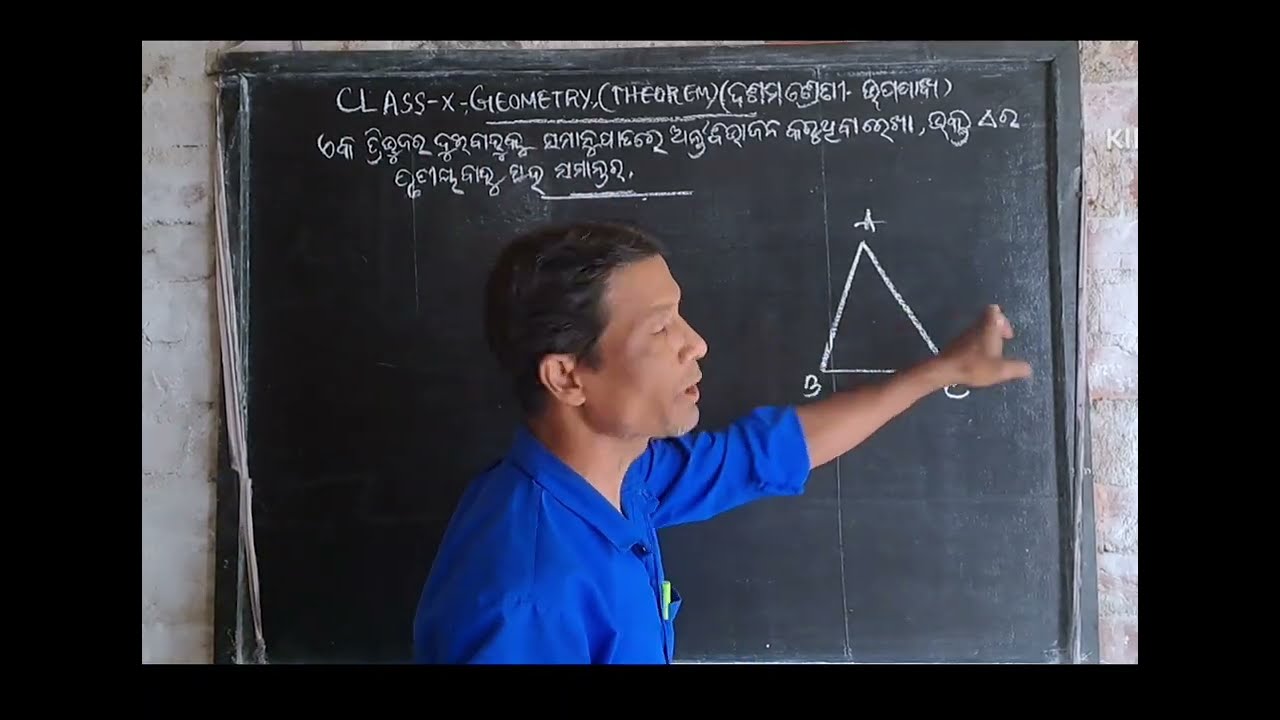 CLASS-X-GEOMETRY.(THEOREM)(ଦଶମ ଶ୍ରେଣୀ- ଉପପାଦ୍ୟ)
ଏକ ତ୍ରିଭୁଜର ଦୁଇବାହୁକୁ ସମାନୁପାତରେ ଅର୍ନ୍ତବିଭାଜନ କରୁଥିବା ରେଖା, ଉକ୍ତ Δ ର
ତୃତୀୟ ବାହୁ ସହ ସମାନ୍ତର.
A
B
C